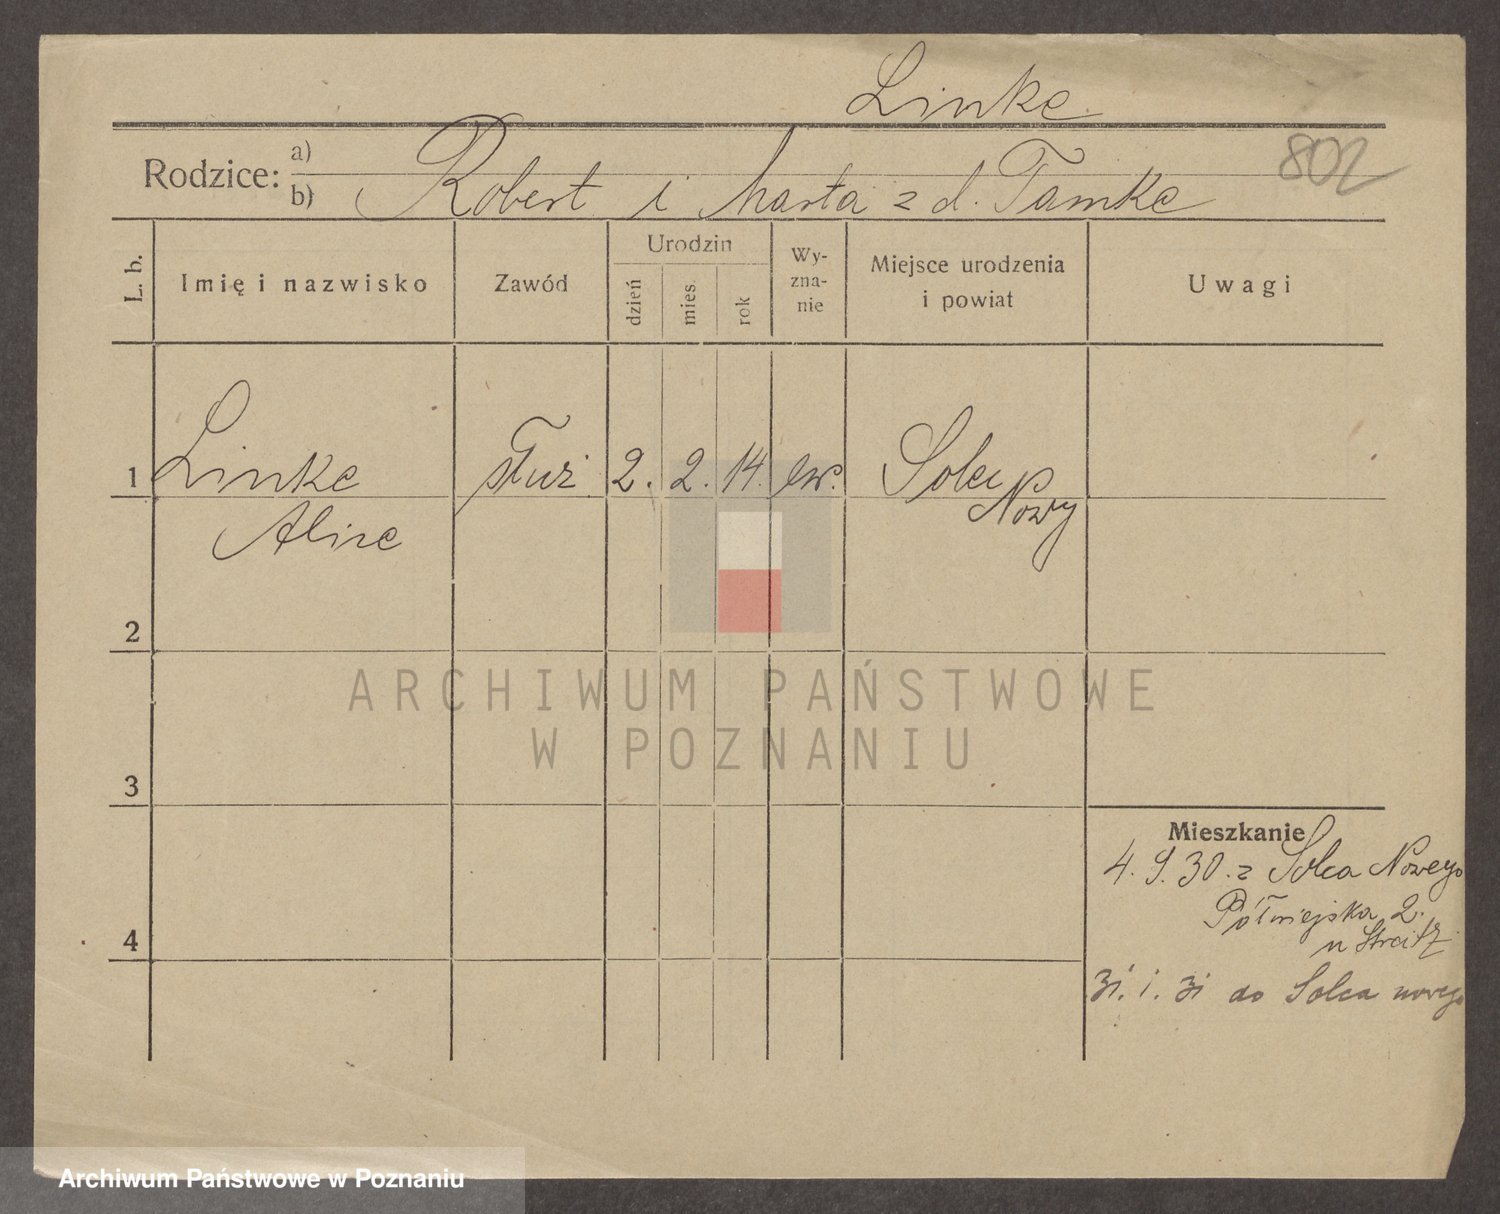 Linke
802
Rodzice: a)
b) Robert i Marta z d. Tamke
L. b.
Imię i nazwisko
Zawód
Urodzin
dzień
mies.
rok
Wy-
zna-
nie
Miejsce urodzenia
i powiat
Uwagi
1 Linke służ 2. 2. 14. ew. Solec
Nowy
Alice
2
ARCHIWUM PAŃSTWOWE
W POZNANIU
3
Mieszkanie
4. 9. 30. z Solca Nowego
Półwiejska 2.
u Streitz
4
31. i. 31 do Solca nowego
Archiwum Państwowe w Poznaniu